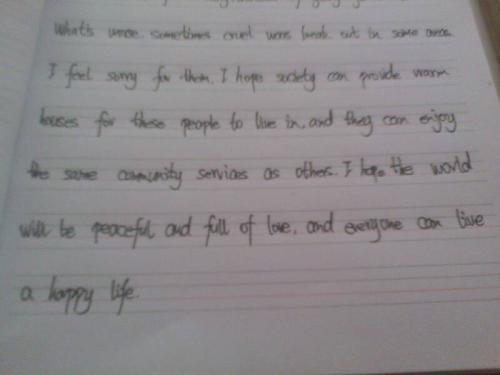 What's worse. sometimes cruel wars break out in some areas.
I feel sorry for them. I hope society can provide warm
houses for these people to live in, and they can enjoy
the same community services as others. I hope the world
will be peaceful and full of love, and everyone can live
a happy life.